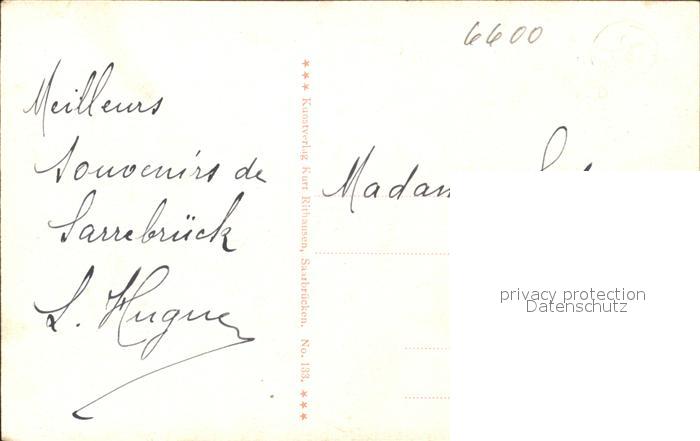 6600
Meilleurs
Souvenirs de
Sarrebrück
L. Hugue
*** Kunstverlag Kurt Rithausen, Saarbrücken. No. 133. ***
privacy protection
Datenschutz